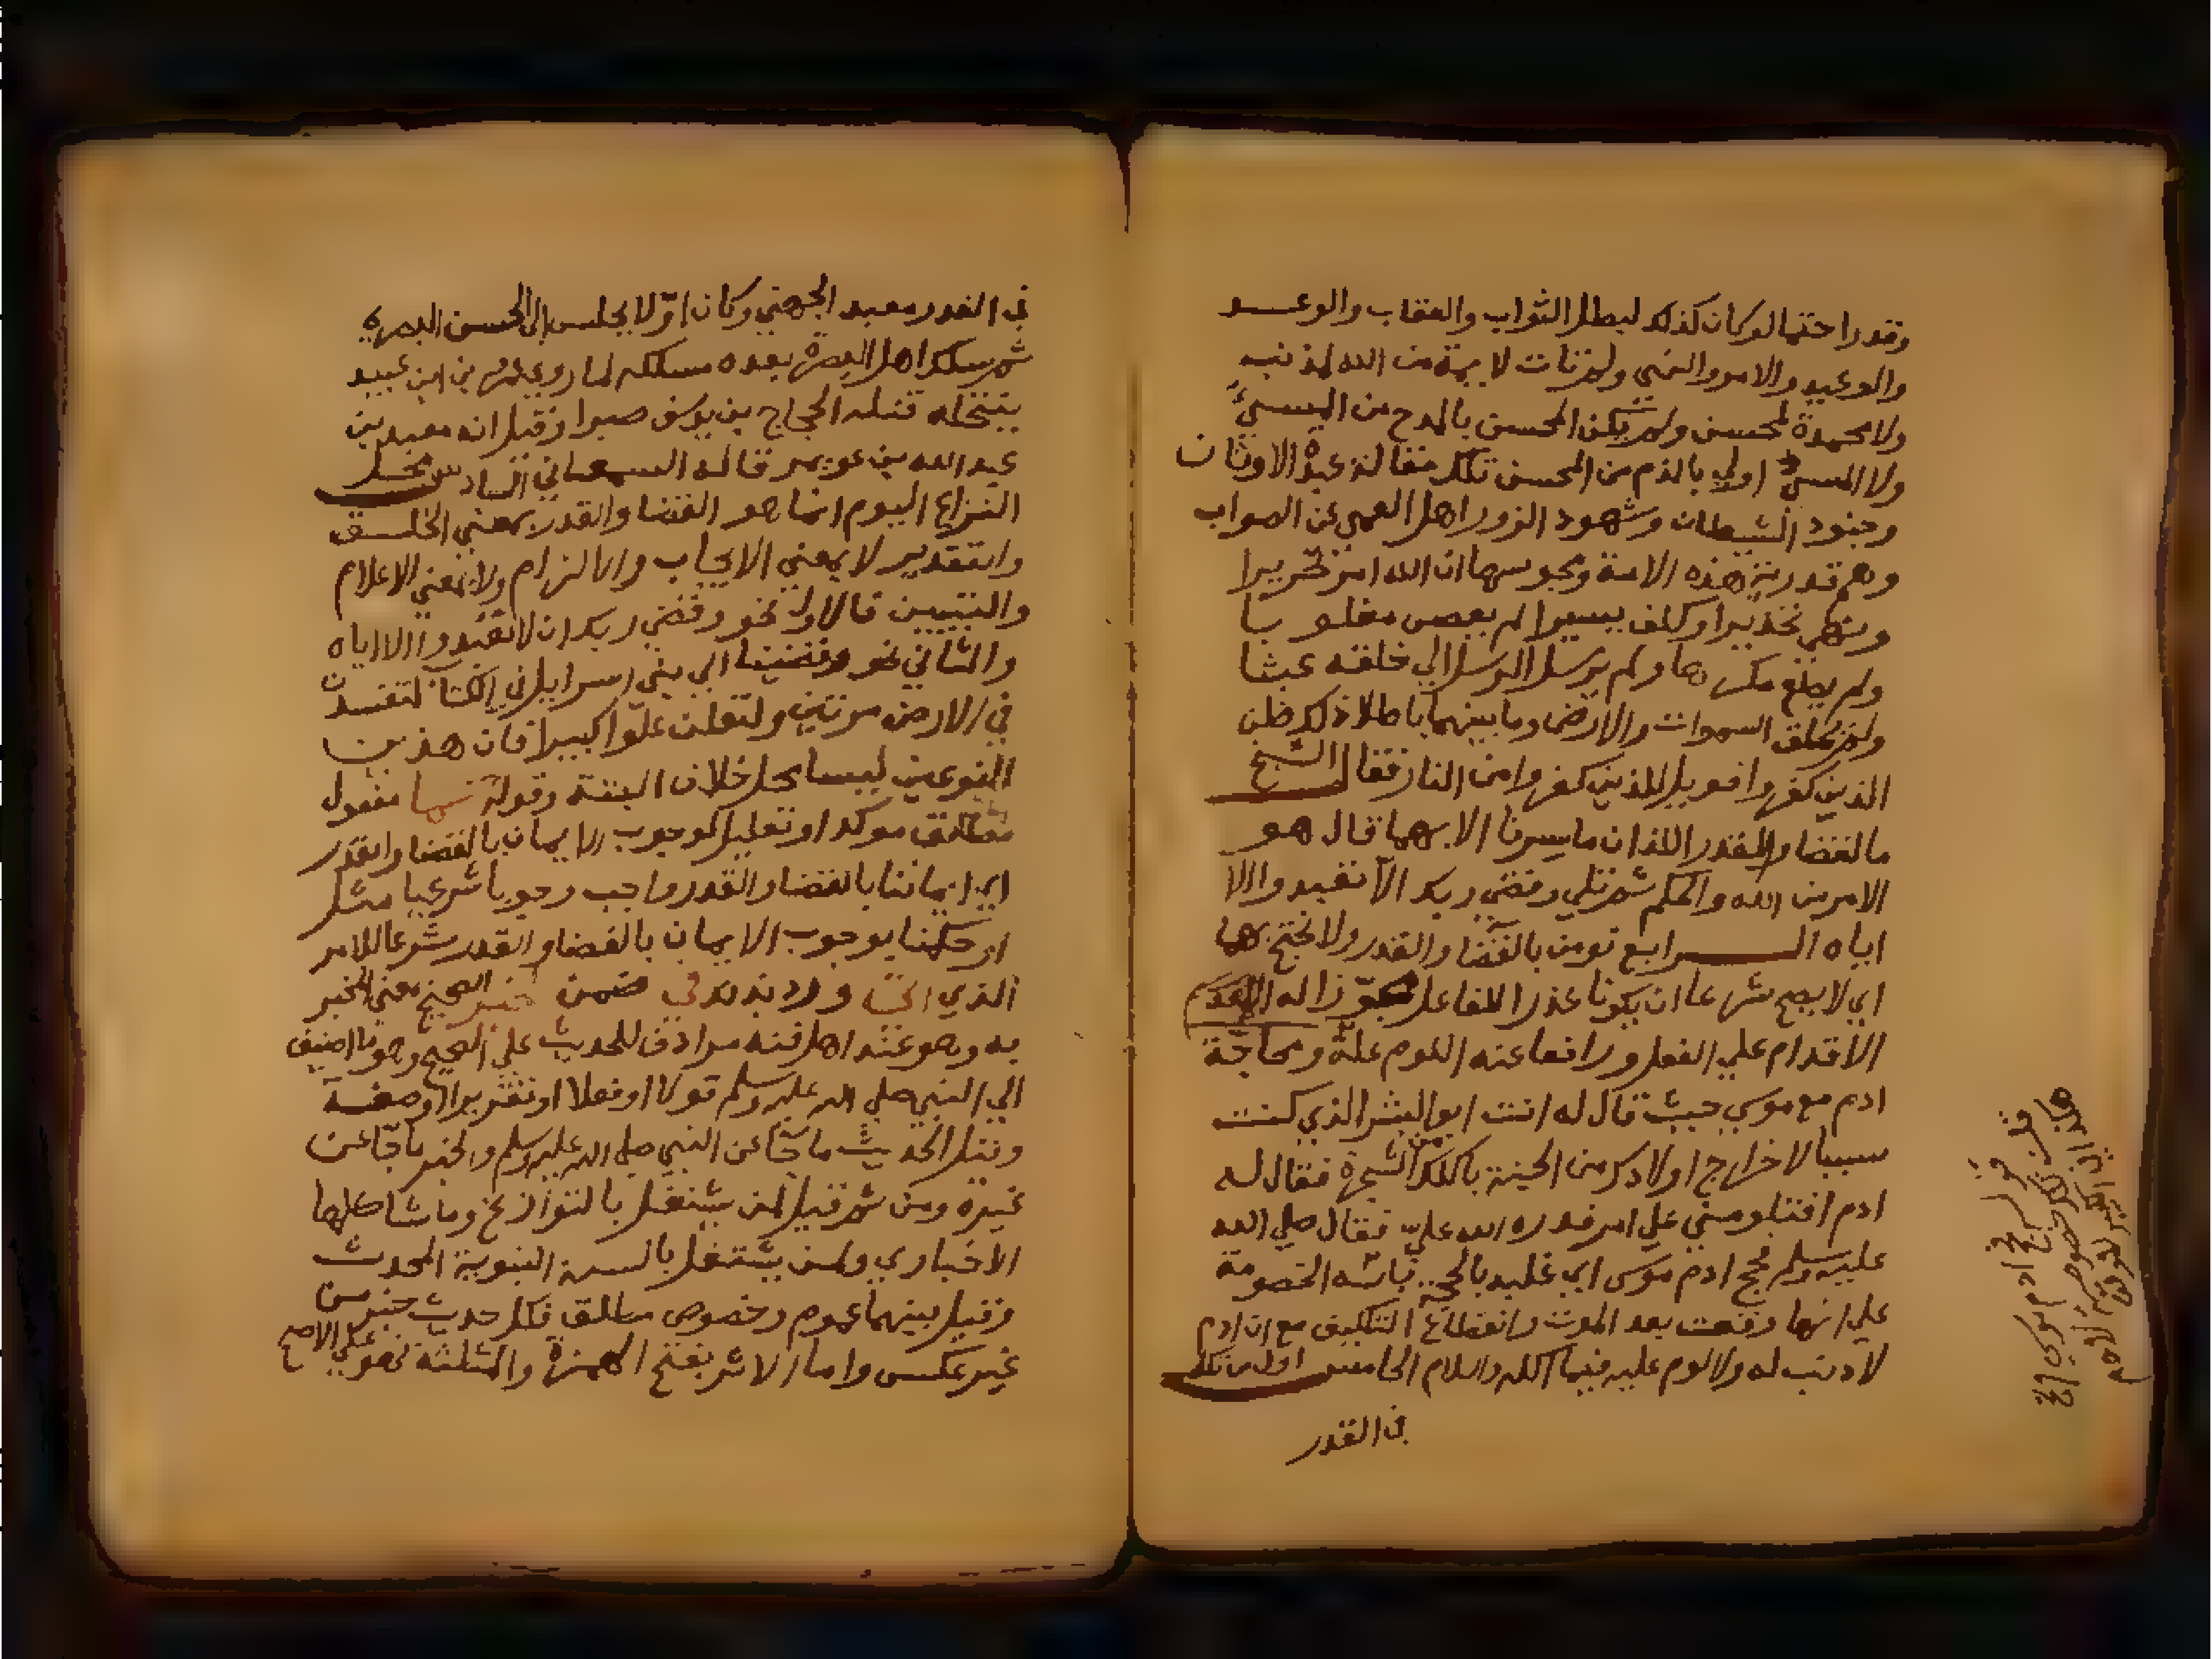 وقدرا حتما لو كان كذلك لبطل الثواب والعقاب والوعد
والوعيد والامر والنهي ولم تات لايمة من الله لمذنب
ولا محمدة لمحسن ولم يكن المحسن بالمدح من المسيء
ولا المسيء اولي بالذم من المحسن تلك مقالة عبدة الاوثان
وجنود الشيطان وشهود الزور اهل العمي عن الصواب
وهم قدرية هذه الامة ومجوسها ان الله امر تخييرا
ونهي تحذيرا وكلف يسيرا لم يعص مغلوبا
ولم يطع مكرها ولم يرسل الرسل الي خلقه عبثا
ولم يخلق السموات والارض وما بينهما باطلا ذلك ظن
الذين كفروا فويل للذين كفروا من النار فقال الشيخ
ما القضا والقدر اللذان ما سرنا الا بهما قال هو
الامر من الله والحكم ثم تلي وقضي ربك الا تعبدوا الا
اياه الرابع نومن بالقضا والقدر ولا نحتج بهما
اي لا يصح شرعا ان يكونا عذرا للفاعل مجوزا له
الاقدام علي الفعل ورافعا عنه اللوم علة ومحاجة
ادم مع موسي حيث قال له انت ابو البشر الذي كنت
سببا لاخراج اولادك من الجنة باكلك من الشجرة فقال له
ادم افتلومني علي امر قدره الله علي فقال صلي الله
عليه وسلم فحج ادم موسي اي غلبه بالحجة باشه الخصومة
علي انها وقعت بعد الموت وانقطاع التكليف مع ان ادم
لا ذنب له ولا لوم عليه فيما اكله والسلام الخامس اول من تكلم
في القدر
فحج ادم موسي الخ
في القدر معبد الجهني وكان اولا يجلس الي الحسن البصري
ثم سلك اهل البصرة بعده مسلكه لما روي عمرو بن ابن عبيد
ينتحله قتله الحجاج بن يوسف صبرا وقيل انه معبد بن
عبد الله بن عويمر قاله السمعاني السادس محل
النزاع اليوم انما هو القضا والقدر بمعني الخلق
والتقدير لا بمعني الايجاب والالزام ولا بمعني الاعلام
والتبيين فالاول نحو وقضي ربك ان لا تعبدوا الا اياه
والثاني نحو وقضينا الي بني اسرايل في الكتاب لتفسدن
في الارض مرتين ولتعلن علوا كبيرا فان هذين
النوعين ليسا محل خلاف البتة وقوله شرعا مفعول
مطلق موكد او تعليل لوجوب الايمان بالقضا والقدر
اي ايماننا بالقضا والقدر واجب وجوبا شرعيا مثل
او حكمنا بوجوب الايمان بالقضا والقدر شرعا للامر
الذي اتي وارد بذلك في ضمن خبر الصحيح معني الخبر
به وهو عند اهل فنه مرادف للحديث علي الصحيح وهو ما اضيف
الي النبي صلي الله عليه وسلم قولا او فعلا او تقريرا او صفة
وقيل الحديث ما جا عن النبي صلي الله عليه وسلم والخبر ما جا عن
غيره ومن ثم قيل لمن يشتغل بالتواريخ وما شاكلها
الاخباري ولمن يشتغل بالسنة النبوية المحدث
وقيل بينهما عموم وخصوص مطلق فكل حديث خبر من
غير عكس واما الاثر بفتح الهمزة والمثلثة فهو علي الاصح